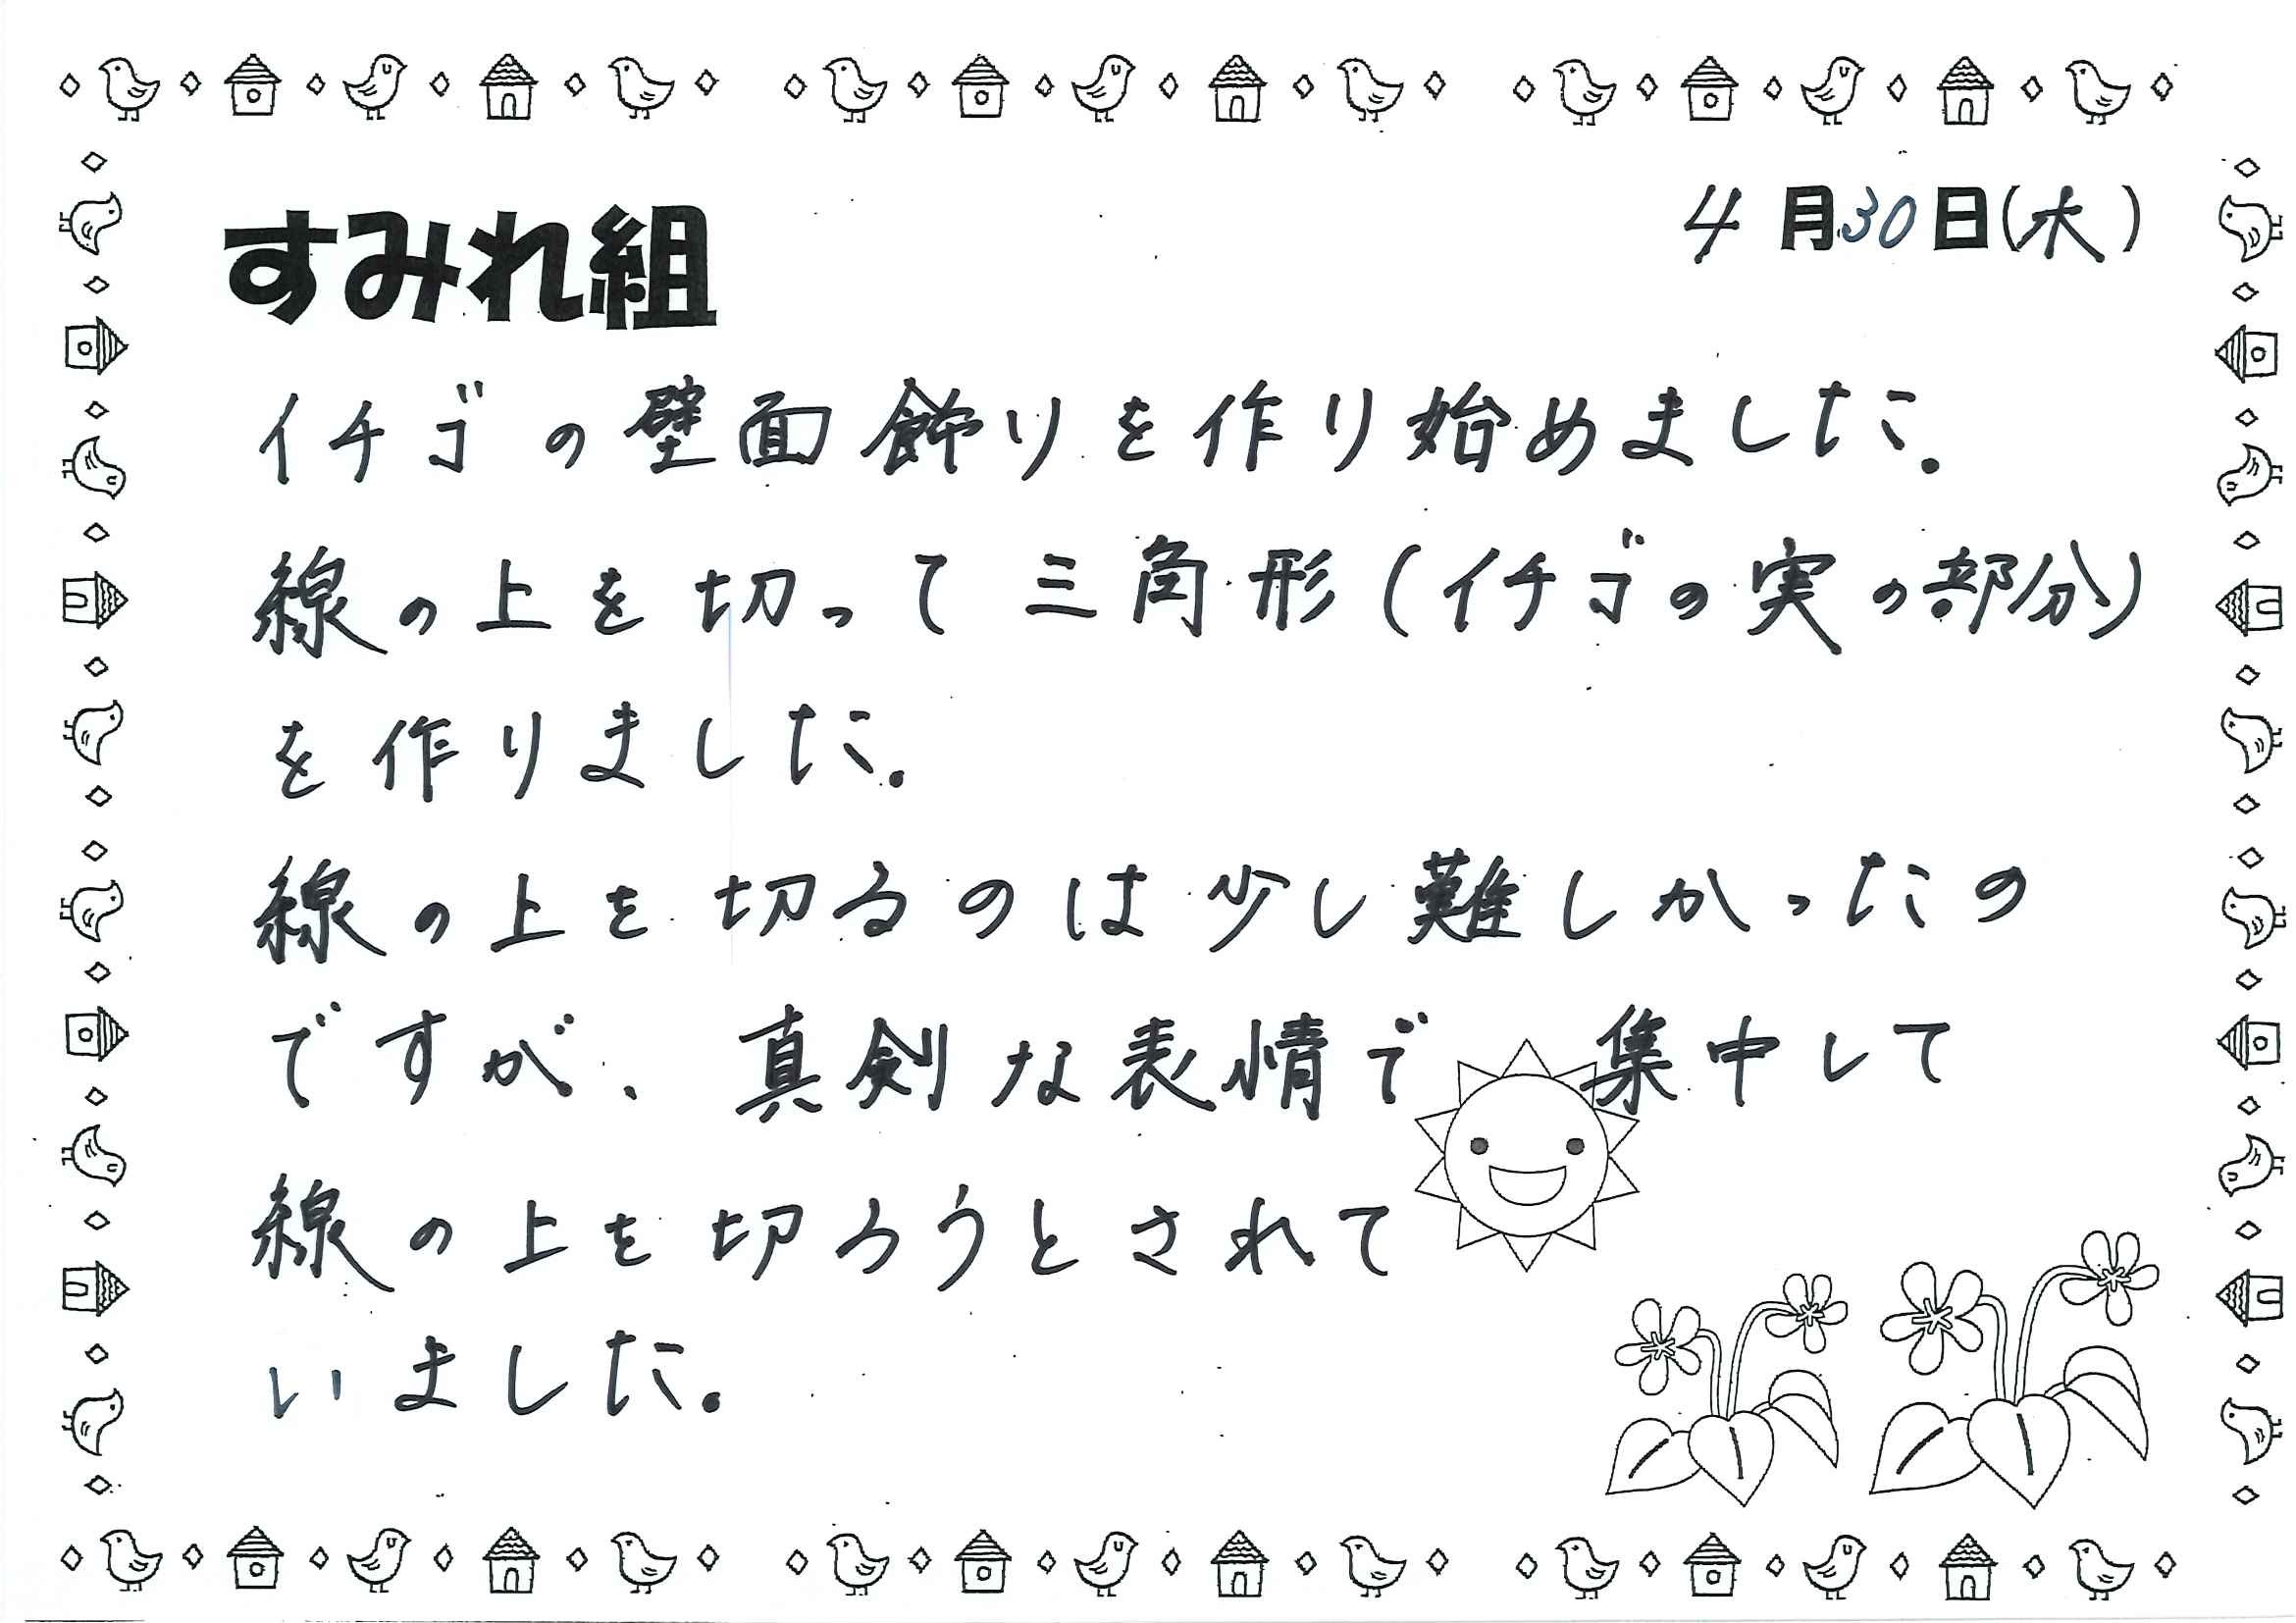 4月30日(水)
すみれ組
イチゴの壁面飾りを作り始めました。
線の上を切って三角形(イチゴの実の部分)
を作りました。
線の上を切るのは少し難しかったの
ですが、真剣な表情で集中して
線の上を切ろうとされて
いました。